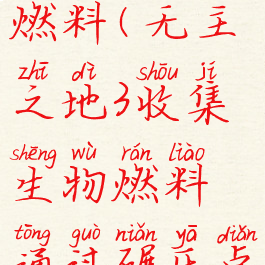 燃料(无主
zhī dì shōu jí
之地3收集
shēng wù rán liào
生物燃料
tōng guò niǎn yā diǎn
通过碾压点